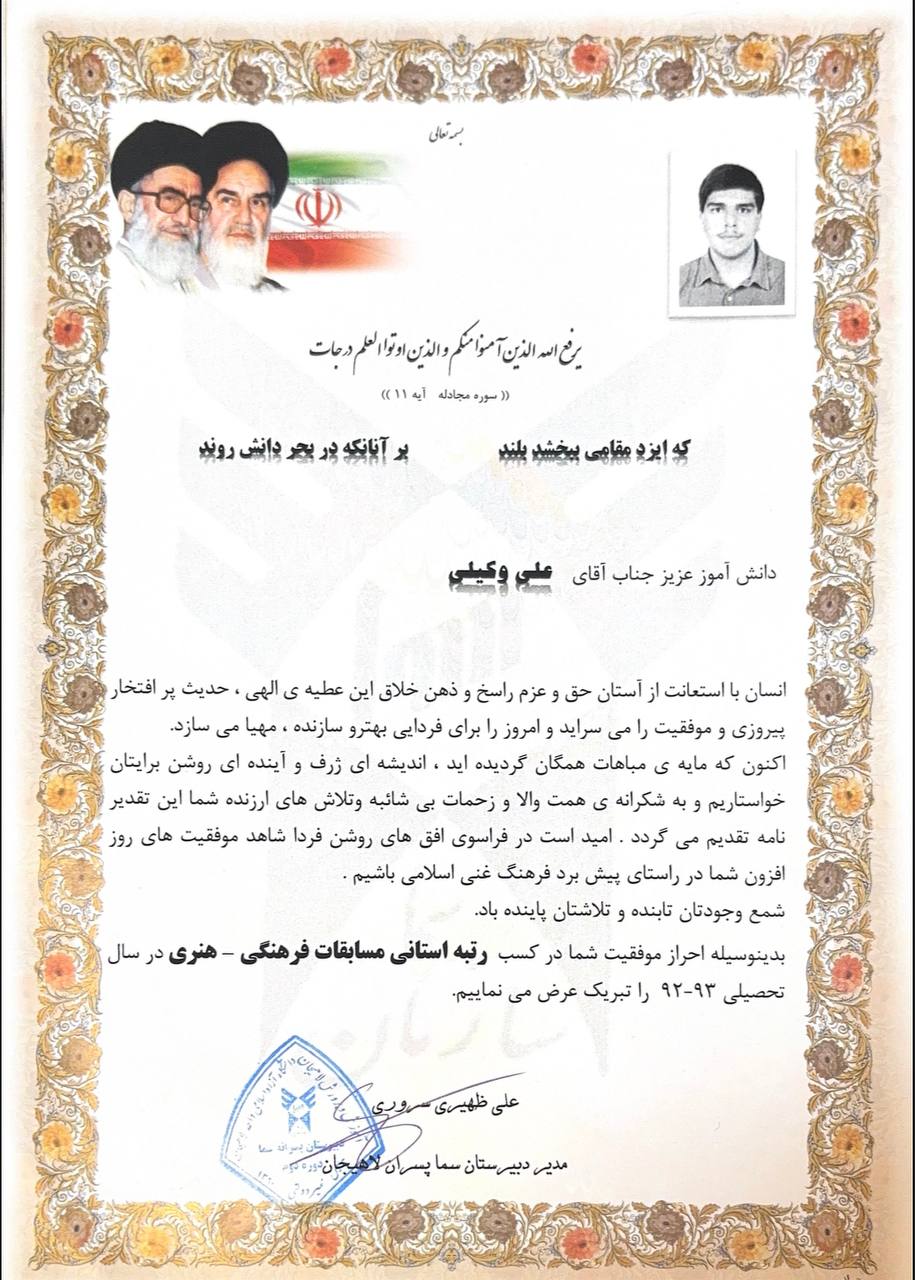 بسمه تعالی
یرفع الله الذین آمنوا منکم و الذین اوتوا العلم درجات
(( سوره مجادله آیه ۱۱ ))
که ایزد مقامی ببخشد بلند بر آنانکه در بحر دانش روند
دانش آموز عزیز جناب آقای علی وکیلی
انسان با استعانت از آستان حق و عزم راسخ و ذهن خلاق این عطیه ی الهی ، حدیث پر افتخار
پیروزی و موفقیت را می سراید و امروز را برای فردایی بهترو سازنده ، مهیا می سازد.
اکنون که مایه ی مباهات همگان گردیده اید ، اندیشه ای ژرف و آینده ای روشن برایتان
خواستاریم و به شکرانه ی همت والا و زحمات بی شائبه وتلاش های ارزنده شما این تقدیر
نامه تقدیم می گردد . امید است در فراسوی افق های روشن فردا شاهد موفقیت های روز
افزون شما در راستای پیش برد فرهنگ غنی اسلامی باشیم .
شمع وجودتان تابنده و تلاشتان پاینده باد.
بدینوسیله احراز موفقیت شما در کسب رتبه استانی مسابقات فرهنگی – هنری در سال
تحصیلی ۹۳-۹۲ را تبریک عرض می نماییم.
علی ظهیری سروری
مدیر دبیرستان سما پسران لاهیجان
دبیرستان پسرانه سما
دوره دوم
سازمان